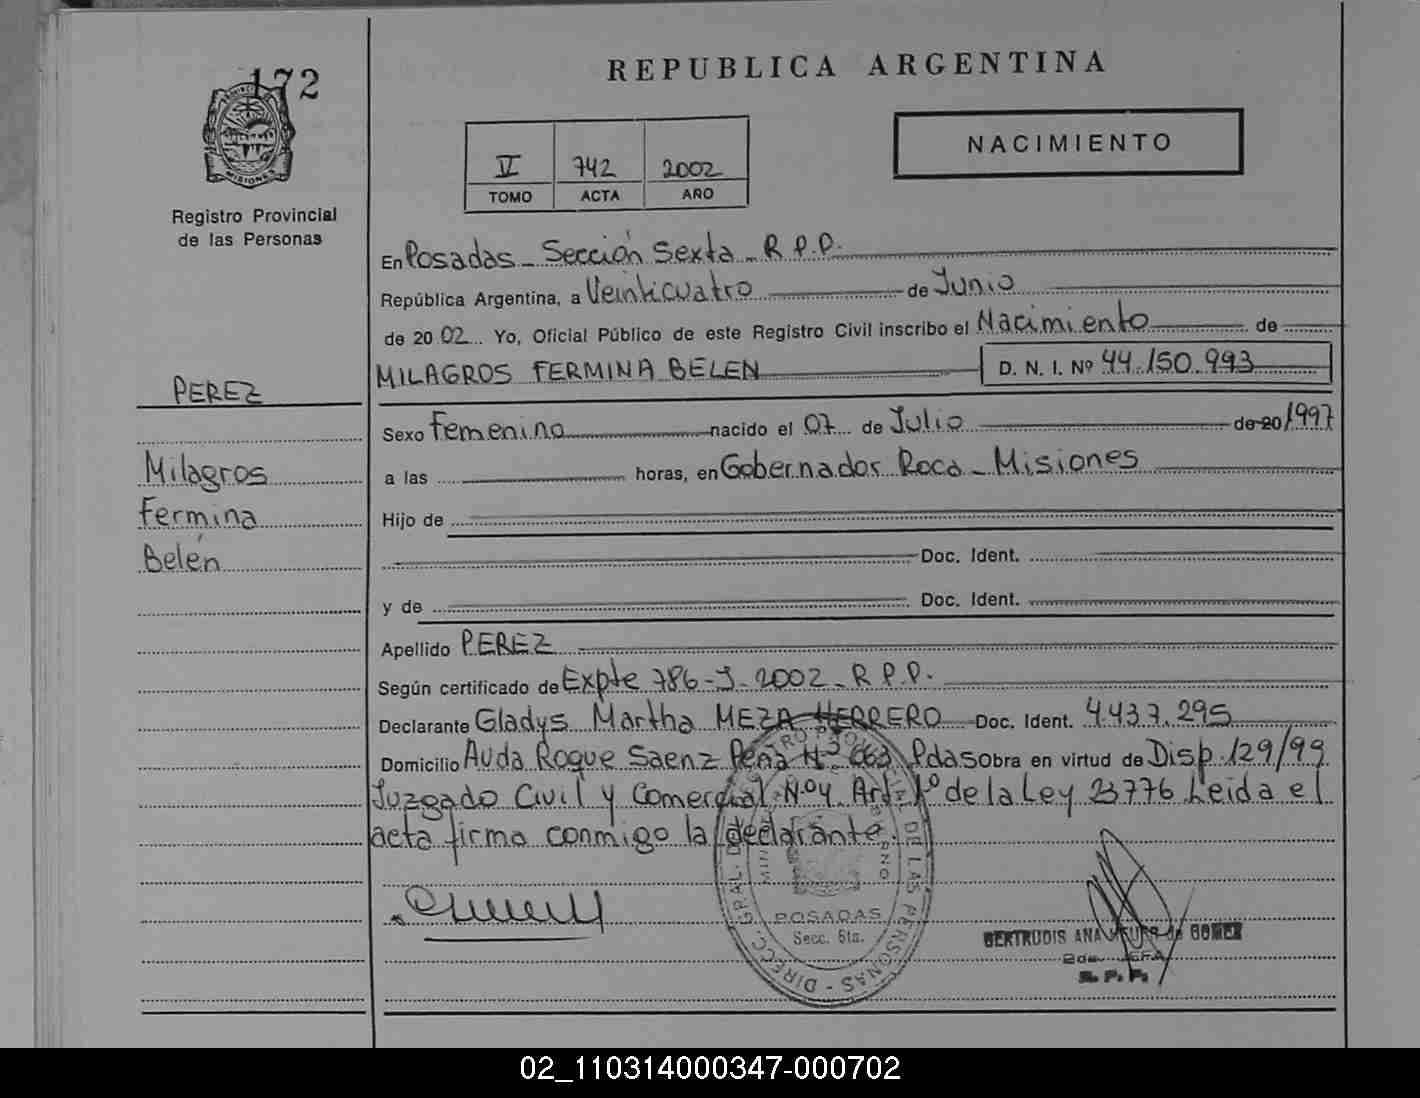 172
REPUBLICA ARGENTINA
NACIMIENTO
IV 742 2002
TOMO ACTA AÑO
PROVINCIA
MISIONES
Registro Provincial
de las Personas
En Posadas - Sección Sexta - R P.P.
República Argentina, a Veinticuatro de Junio
de 20 02 Yo, Oficial Público de este Registro Civil inscribo el Nacimiento de
MILAGROS FERMINA BELEN D. N. I. Nº 44.150.993
PEREZ
Milagros
Fermina
Belén
Sexo Femenino nacido el 07 de Julio de 20 1997
a las horas, en Gobernador Roca - Misiones
Hijo de
Doc. Ident.
y de Doc. Ident.
Apellido PEREZ
Según certificado de Expte 786-J-2002 - R P.P.
Declarante Gladys Martha MEZA HERRERO Doc. Ident. 4.437.295
Domicilio Avda Roque Saenz Peña Nº 663 Pdas Obra en virtud de Disp. 129/99
Juzgado Civil y Comercial Nº 4 Art. 1º de la Ley 23776 Leida el
acta firma conmigo la declarante.
DIRECC. GRAL. DE LAS PERSONAS
POSADAS
Secc. 6ta.
GERTRUDIS ANA de GOMEZ
2da JEFA
R. P. P.
02_110314000347-000702